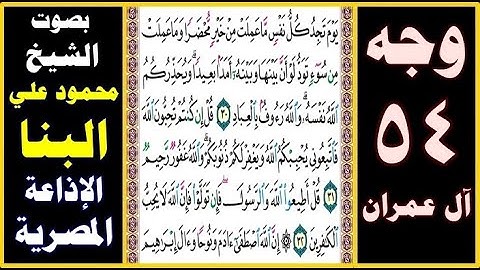 وجه
٥٤
آل عمران
يَوْمَ تَجِدُ كُلُّ نَفْسٍ مَّا عَمِلَتْ مِنْ خَيْرٍ مُّحْضَرًا وَمَا عَمِلَتْ
مِن سُوٓءٍ تَوَدُّ لَوْ أَنَّ بَيْنَهَا وَبَيْنَهُۥٓ أَمَدًۢا بَعِيدًاۗ وَيُحَذِّرُكُمُ
ٱللَّهُ نَفْسَهُۥۗ وَٱللَّهُ رَءُوفٌۢ بِٱلْعِبَادِ ٣٠ قُلْ إِن كُنتُمْ تُحِبُّونَ ٱللَّهَ
فَٱتَّبِعُونِى يُحْبِبْكُمُ ٱللَّهُ وَيَغْفِرْ لَكُمْ ذُنُوبَكُمْۗ وَٱللَّهُ غَفُورٌ رَّحِيمٌ
٣١ قُلْ أَطِيعُوا۟ ٱللَّهَ وَٱلرَّسُولَۖ فَإِن تَوَلَّوْا۟ فَإِنَّ ٱللَّهَ لَا يُحِبُّ
ٱلْكَٰفِرِينَ ٣٢ ۞ إِنَّ ٱللَّهَ ٱصْطَفَىٰٓ ءَادَمَ وَنُوحًا وَءَالَ إِبْرَٰهِيمَ
بصوت
الشيخ
محمود علي
البنا
الإذاعة
المصرية